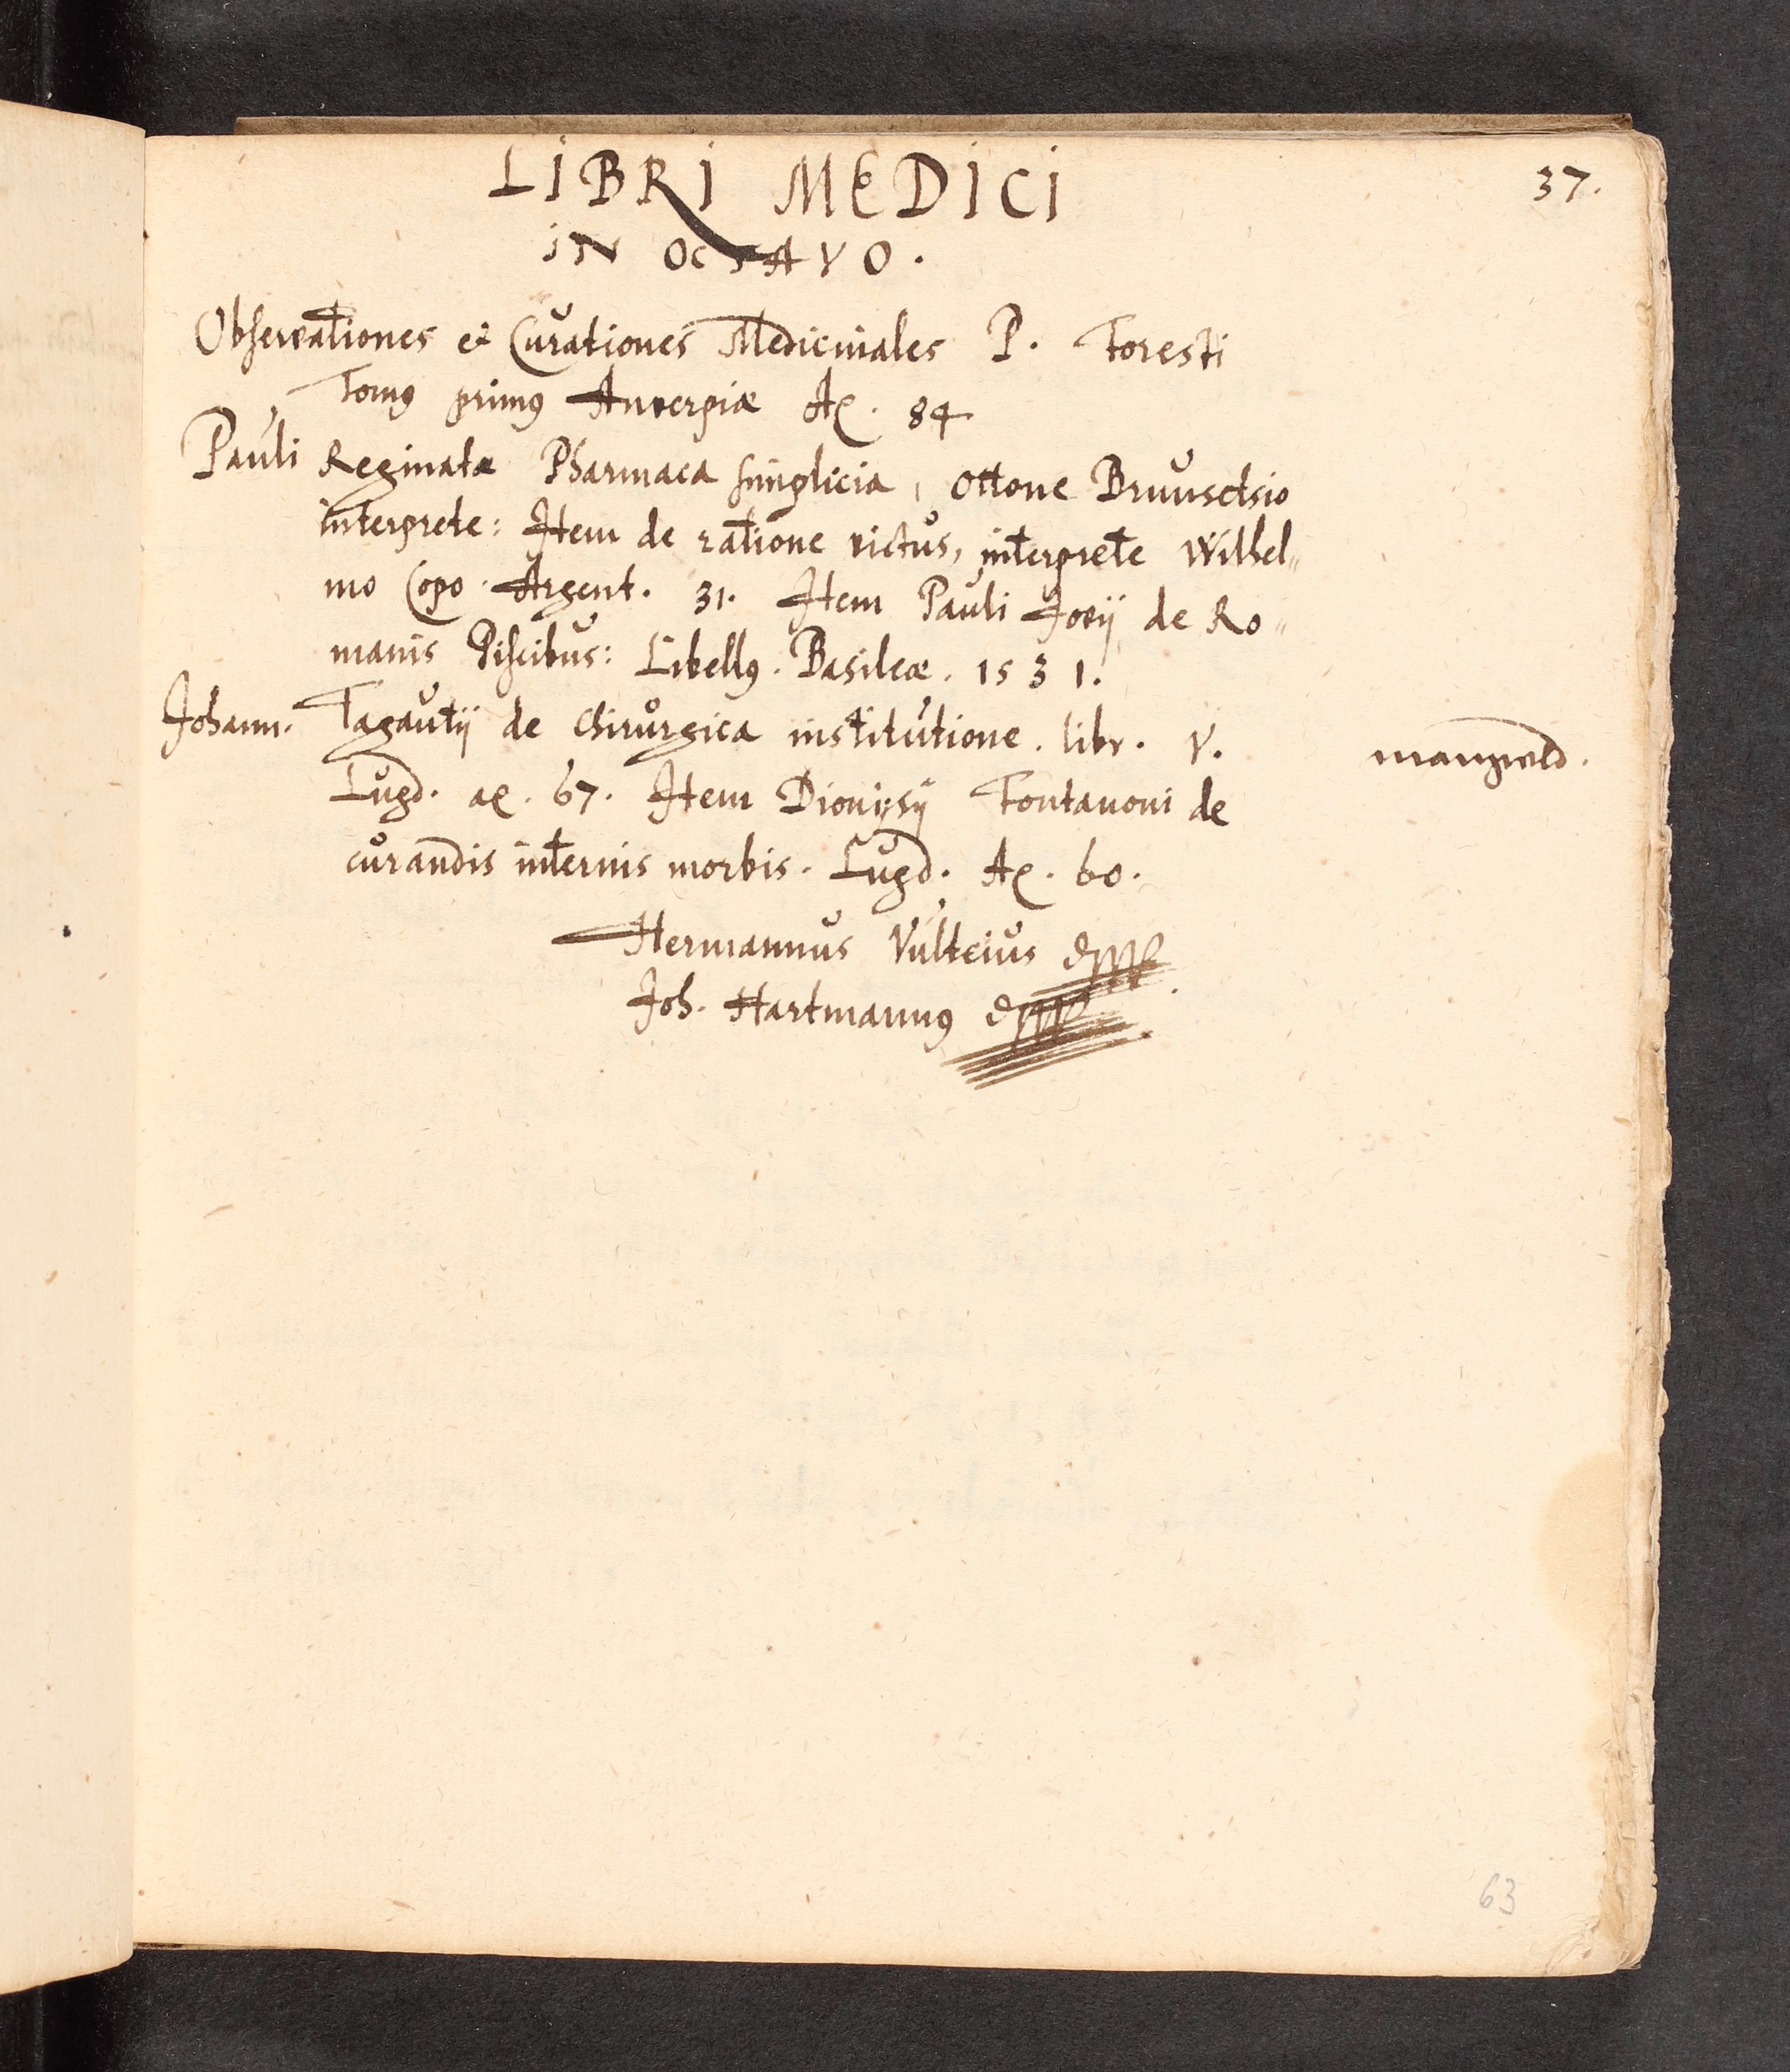 LIBRI MEDICI
37.
IN OCTAVO.
Observationes et Curationes Medicinales P. Foresti
Tomus primus Anverpiæ Aº. 84
Pauli Reginatæ Pharmaca simplicia, Ottone Brunsetsio
interprete: Item de ratione victus, interprete Wilhel„
mo Copo. Argent. 31. Item Pauli Jovij de Ro„
manis Piscibus: Libellus. Basileæ. 1531.
Johann. Tagautij de Chirurgica institutione. libr. V.
Lugd. aº. 67. Item Dionisij Fontanoni de
curandis internis morbis. Lugd. Aº. 60.
Hermannus Vulteius
Joh. Hartmannus
63